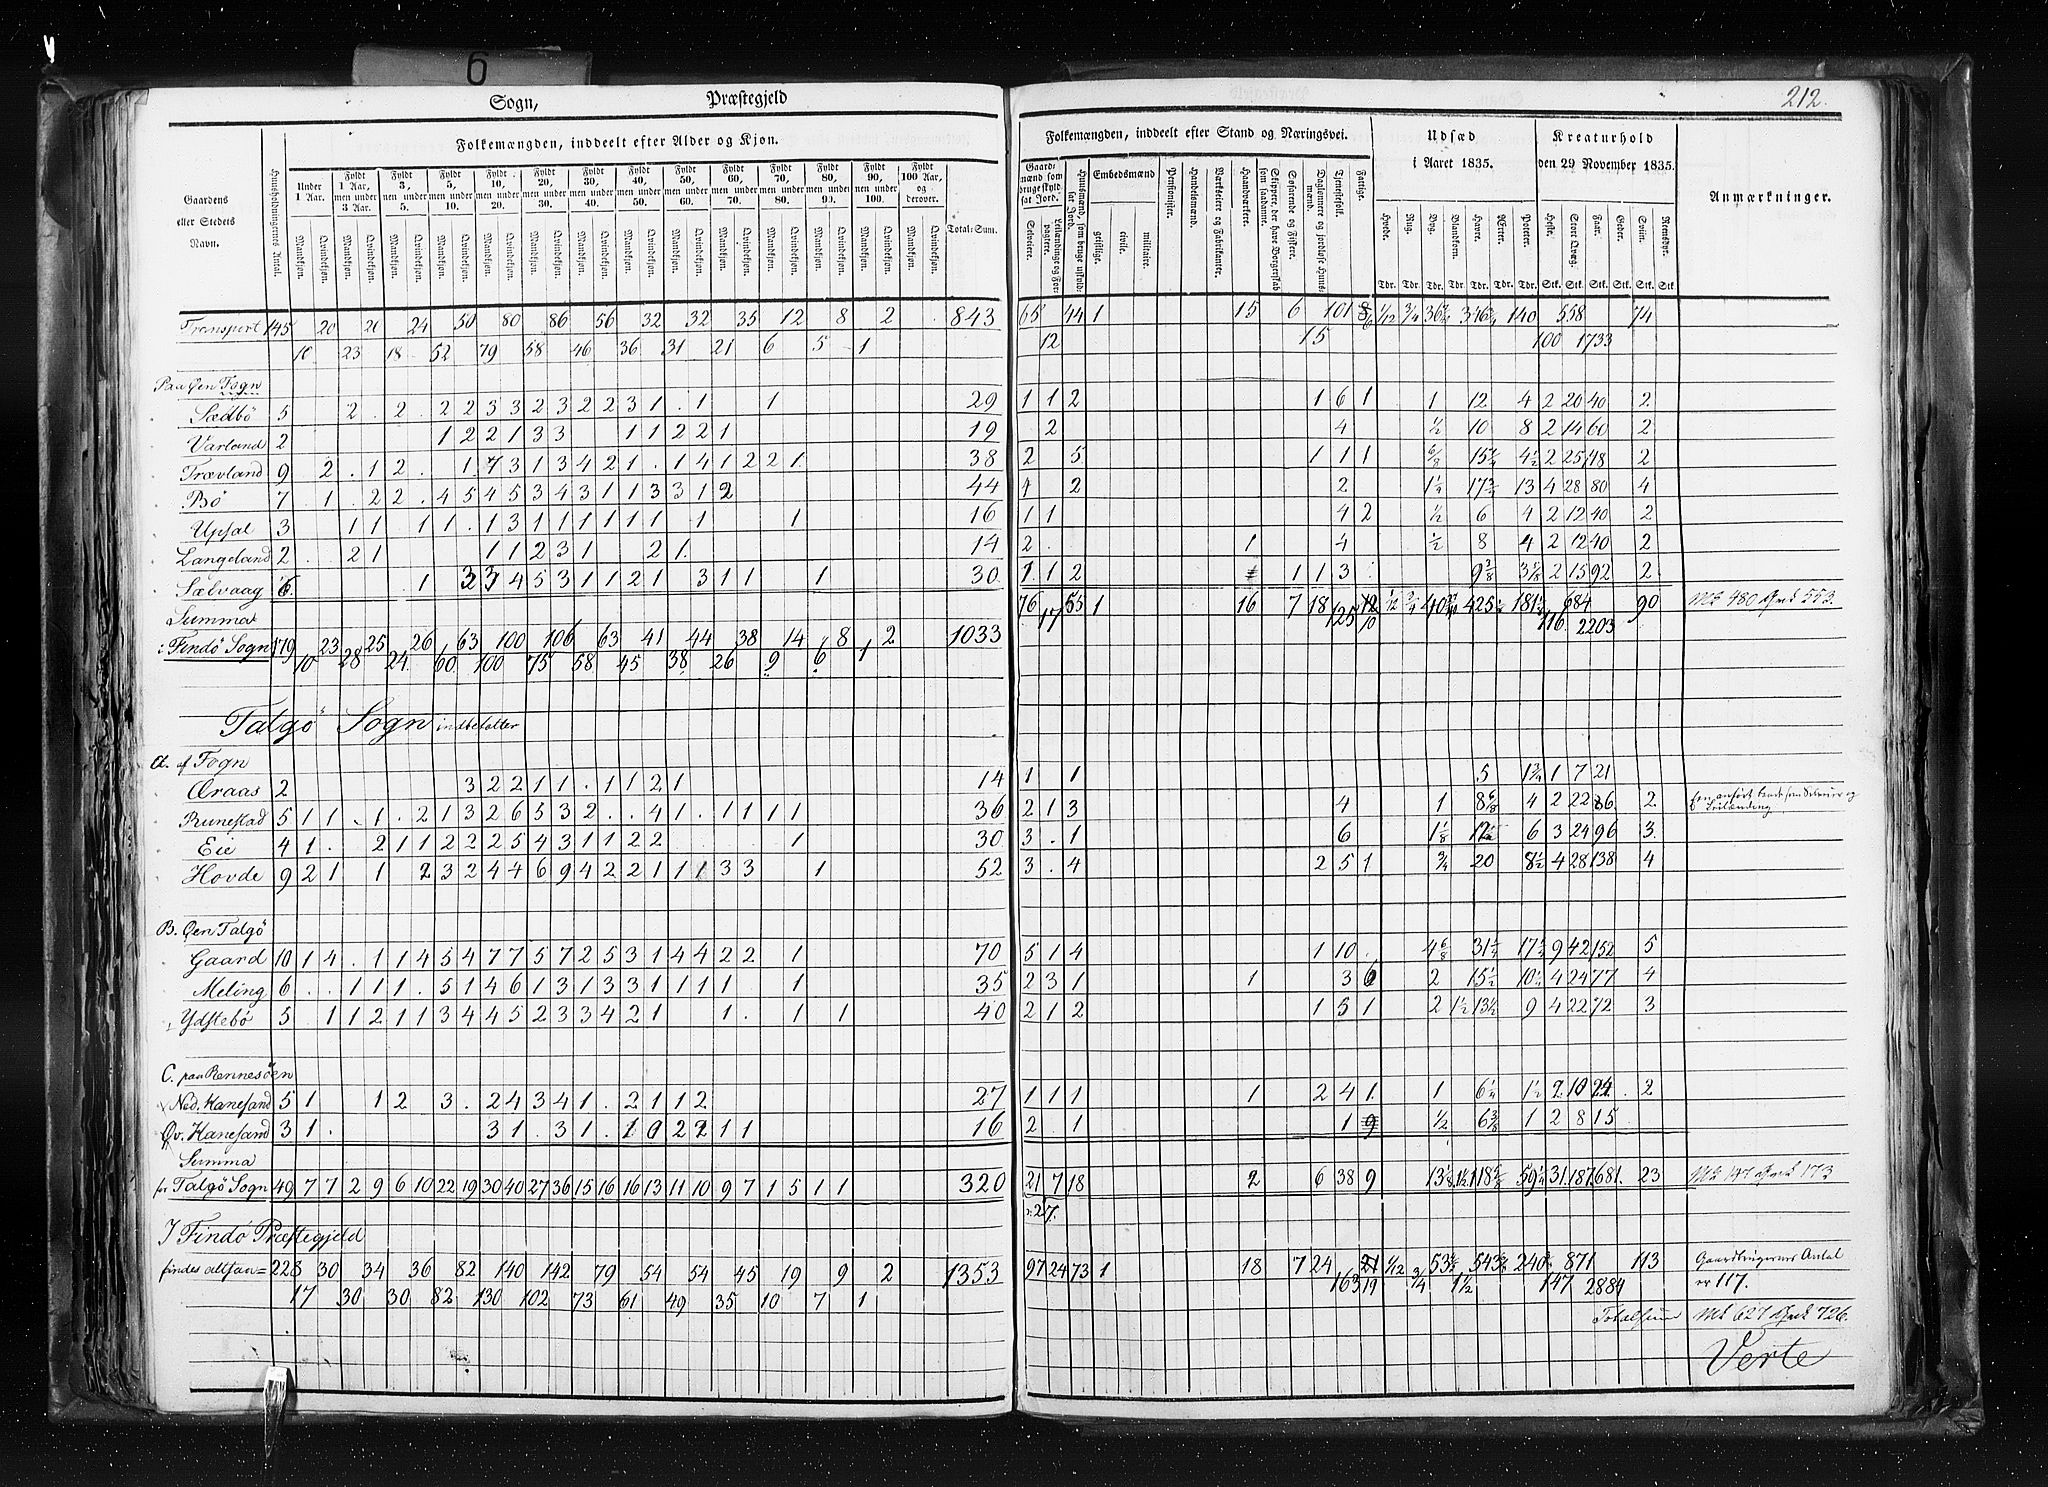 6
Sogn, Præstegjeld
212.
Gaardens eller Stedets Navn.
Huusholdningernes Antal.
Folkemængden, inddeelt efter Alder og Kjøn.
Under 1 Aar.
Fyldt 1 Aar, men under 3 Aar.
Fyldt 3, men under 5.
Fyldt 5, men under 10.
Fyldt 10, men under 20.
Fyldt 20, men under 30.
Fyldt 30, men under 40.
Fyldt 40, men under 50.
Fyldt 50, men under 60.
Fyldt 60, men under 70.
Fyldt 70, men under 80.
Fyldt 80, men under 90.
Fyldt 90, men under 100.
Fyldt 100 Aar, og derover.
Total-Sum.
Mandkjøn. Qvindekjøn.
Folkemængden, inddeelt efter Stand og Næringsvei.
Gaardmænd som bruge skyldsat Jord.
Selveiere.
Leilændinge og Forpagtere.
Huusmænd, som bruge uskyldsat Jord.
Embedsmænd
geistlige. civile. militaire.
Pensionister.
Handelsmænd.
Værkseiere og Fabrikanter.
Haandværkere.
Skippere, der have Borgerskab som saadanne.
Søfarende og Fiskere.
Daglønnere og jordløse Huusmænd.
Tjenestefolk.
Fattige.
Udsæd i Aaret 1835.
Hvede. Rug. Byg. Blandkorn. Havre. Erter. Poteter.
Tdr. Tdr. Tdr. Tdr. Tdr. Tdr. Tdr.
Kreaturhold den 29 November 1835.
Heste. Stort Qvæg. Faar. Geder. Sviin. Rensdyr.
Stk. Stk. Stk. Stk. Stk. Stk
Anmærkninger.
Transport 145 20 20 24 50 80 86 56 32 32 35 12 8 2 843 65 44 1 15 6 101 1/12 3/4 140 558 74
10 23 18 52 79 58 46 36 31 21 6 5 1 12 15 100 1733
Paa Øen Fogn
Sædbö 5 2 . 2 . 2 2 3 3 2 3 2 2 3 1 . 1 1 29 1 1 2 1 6 1 1 12 4 2 20 40 2
Varland 2 1 2 2 1 3 3 1 1 2 2 1 19 2 4 1/2 10 8 2 14 60 2
Trævland 9 2 . 1 2 . 1 7 3 1 3 4 2 1 . 1 4 1 2 2 1 38 2 5 1 1 1 6/8 4 1/2 2 25 48 2
Bö 7 1 . 2 2 . 4 5 4 5 3 4 3 1 1 3 3 1 2 44 4 2 2 1 1/4 13 4 28 80 4
Upsal 3 1 1 1 1 . 1 3 1 1 1 1 1 1 1 1 16 1 1 4 2 1/2 6 4 2 12 40 2
Langeland 2 . 2 1 1 1 2 3 1 2 1 14 2 . 1 4 1/2 8 4 2 12 40 2
Sælvaag 6 1 3 3 4 5 3 1 1 2 1 3 1 1 1 30 1 1 2 1 1 3 9 3/8 2 15 92 2
Summa 76 17 55 1 16 7 18 125 10 116 684 2203 90 Mk 480 Qvk 553.
: Findö Sogn 179 23 25 26 63 100 106 63 41 44 38 14 8 2 1033
10 28 24 60 100 75 58 45 38 26 9 6 1
Talgö Sogn indbefatter
a. af Fogn
Øraas 2 3 2 2 1 1 . 1 1 2 1 14 1 1 5 1 3/4 1 7 21
Runestad 5 1 1 . 1 . 2 1 3 2 6 5 3 2 . . 4 1 . 1 1 1 1 36 2 1 3 4 1 8 6/8 4 2 22 86 2
Eie 4 1 . 2 1 1 2 2 2 5 4 3 1 1 2 2 1 30 3 . 1 6 1 1/8 6 3 24 96 3
Hovde 9 2 1 1 2 3 2 4 4 6 9 4 2 2 1 1 1 3 3 1 52 3 . 4 2 5 1 3/4 20 8 1/2 4 28 138 4
B. Øen Talgö
Gaard 10 1 4 . 1 1 4 5 4 7 7 5 7 2 5 3 1 4 4 2 2 1 70 5 1 4 1 10 . 4 6/8 9 42 152 5
Meling 6 . . 1 1 1 . 5 1 4 6 1 3 1 3 3 1 1 1 1 1 35 2 3 1 1 3 6 2 15 1/2 4 24 77 4
Ydstebö 5 1 1 2 1 1 3 4 4 5 2 3 3 4 2 1 1 . 1 1 40 2 1 2 1 5 1 2 1 1/2 13 1/2 9 4 22 72 3
C. paa Rennesöen
Ned. Hanesand 5 1 1 2 3 . 2 4 3 4 1 . 2 1 1 2 27 1 1 1 1 2 4 1 1 6 1/4 1 1/2 2 10 24 . 2
Øv. Hanesand 3 1 . 3 1 . 3 1 16 2 . 1 1 1/2 6 3/8 1 2 8 15
Summa
for Talgö Sogn 49 7 7 2 9 6 10 22 19 30 40 27 36 15 16 16 13 11 10 9 7 1 5 1 1 320 21 7 18 2 6 38 9 13 1/8 1 1/2 31 187 681 23 Mk 147 Qvk 173
27.
I Findö Præstegjeld
findes altsaa = 228 30 34 36 82 140 142 79 54 54 45 19 9 2 1353 97 24 73 1 18 7 24 21 1/12 871 113 Gaardbrugernes Antal
17 30 30 82 130 102 73 61 49 35 10 7 1 163 19 3/4 1 1/2 147 2884 er 117.
Totalsum Mk 627 Qvk 726.
Verte